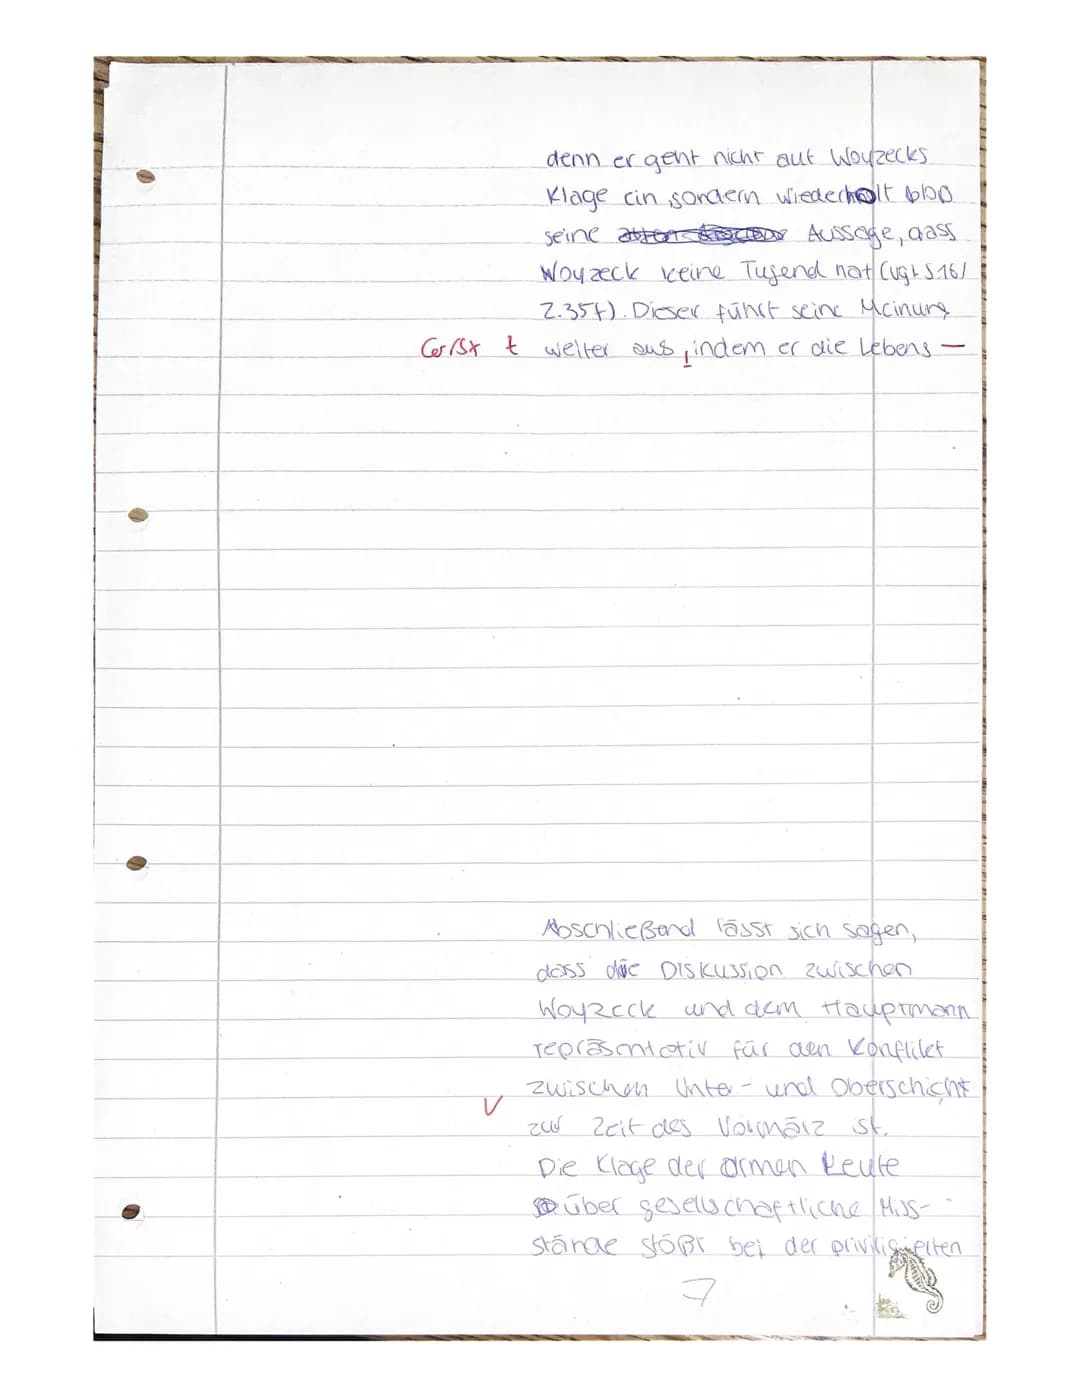 denn er geht nicht auf Woyzecks
Klage ein, sondern wiederholt bloß
seine Aussage, dass
Woyzeck keine Tugend hat (vgl. S.16/
Z.35f). Dieser führt seine Meinung
t weiter aus, indem er die Lebens-
Abschließend lässt sich sagen,
dass die Diskussion zwischen
Woyzeck und dem Hauptmann
repräsentativ für den Konflikt
zwischen Unter- und Oberschicht
zur Zeit des Vormärz ist.
Die Klage der armen Leute
über gesellschaftliche Miss-
stände stößt bei der priviligierten
7